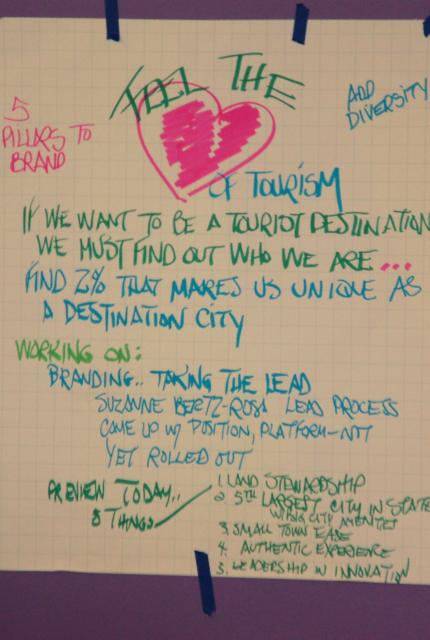 FEEL THE
OF TOURISM
ADD
DIVERSITY
5
PILLARS TO
BRAND
IF WE WANT TO BE A TOURIST DESTINATION
WE MUST FIND OUT WHO WE ARE...
FIND 2% THAT MAKES US UNIQUE AS
A DESTINATION CITY
WORKING ON:
BRANDING.. TAKING THE LEAD
SUZANNE BERTZ-ROSA LEAD PROCESS
CAME UP W/ POSITION, PLATFORM-NOT
YET ROLLED OUT
PREVIEW TODAY..
5 THINGS
1. LAND STEWARDSHIP
2. 5TH LARGEST CITY IN STATE
W/BIG CITY AMENITIES
3. SMALL TOWN EASE
4. AUTHENTIC EXPERIENCE
5. LEADERSHIP IN INNOVATION